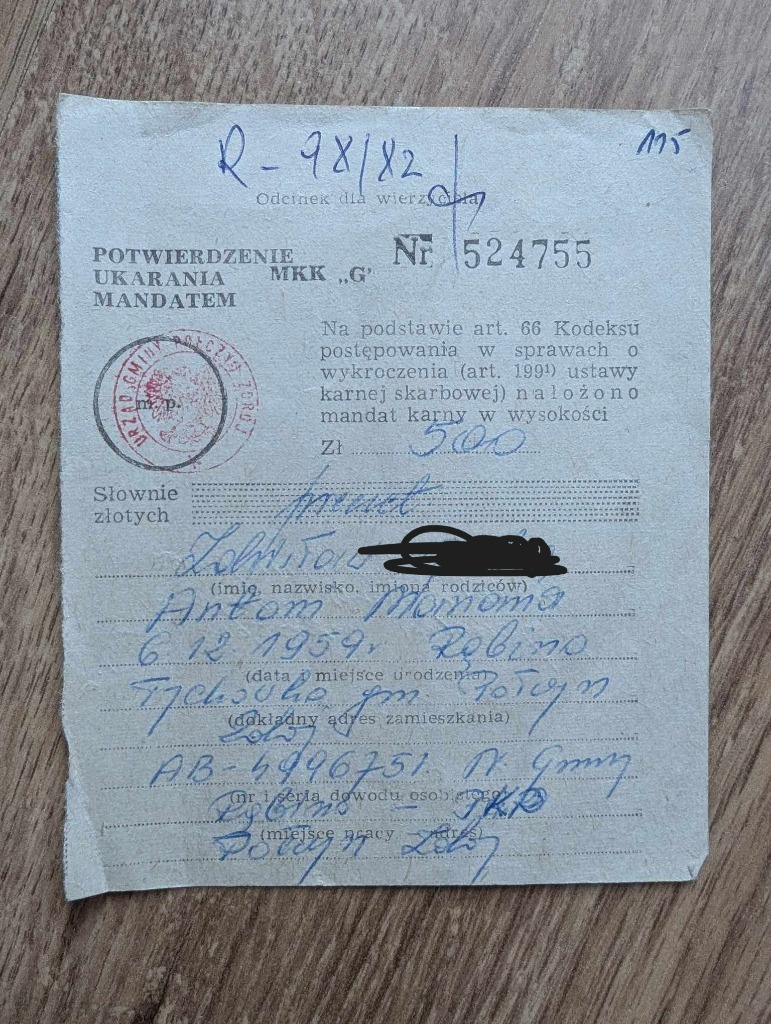 115
R - 98/82
Odcinek dla wierzyciela
POTWIERDZENIE
UKARANIA MKK „G"
MANDATEM
Nr 524755
URZĄD GMINY POŁCZYN ZDRÓJ
m. p.
Na podstawie art. 66 Kodeksu
postępowania w sprawach o
wykroczenia (art. 199¹) ustawy
karnej skarbowej) nałożono
mandat karny w wysokości
Zł 500
Słownie
złotych
(imię, nazwisko, imiona rodziców)
6 12 1959r Rąbino
(data i miejsce urodzenia)
Tychówko gm. Połczyn
(dokładny adres zamieszkania)
Zdrój
AB-4996751. N. Gminy
(nr i seria dowodu osobistego)
Rąbino -
(miejsce pracy - adres)
Połczyn Zdrój